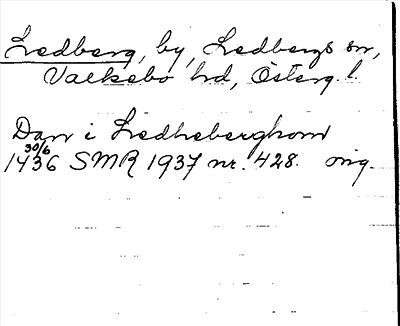 Ledberg, by, Ledbergs sn,
Valkebo hd, Österg. l.
Dan i Ledheberghom
30/6
1436 SMR 1937 nr. 428. orig.